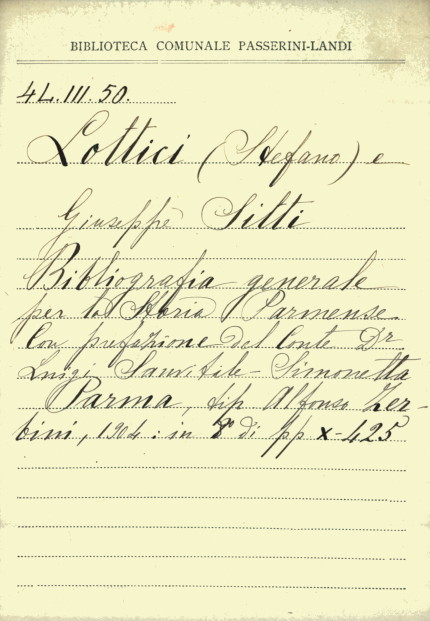 BIBLIOTECA COMUNALE PASSERINI-LANDI
4L.III.50.
Lottici (Stefano) e
Giuseppe Sitti
Bibliografia generale
per la Storia Parmense.
Con prefazione del Conte Dr
Luigi Sanvitale - Simonetta
Parma, tip Alfonso Zer-
bini, 1904 : in 8° di pp X-425